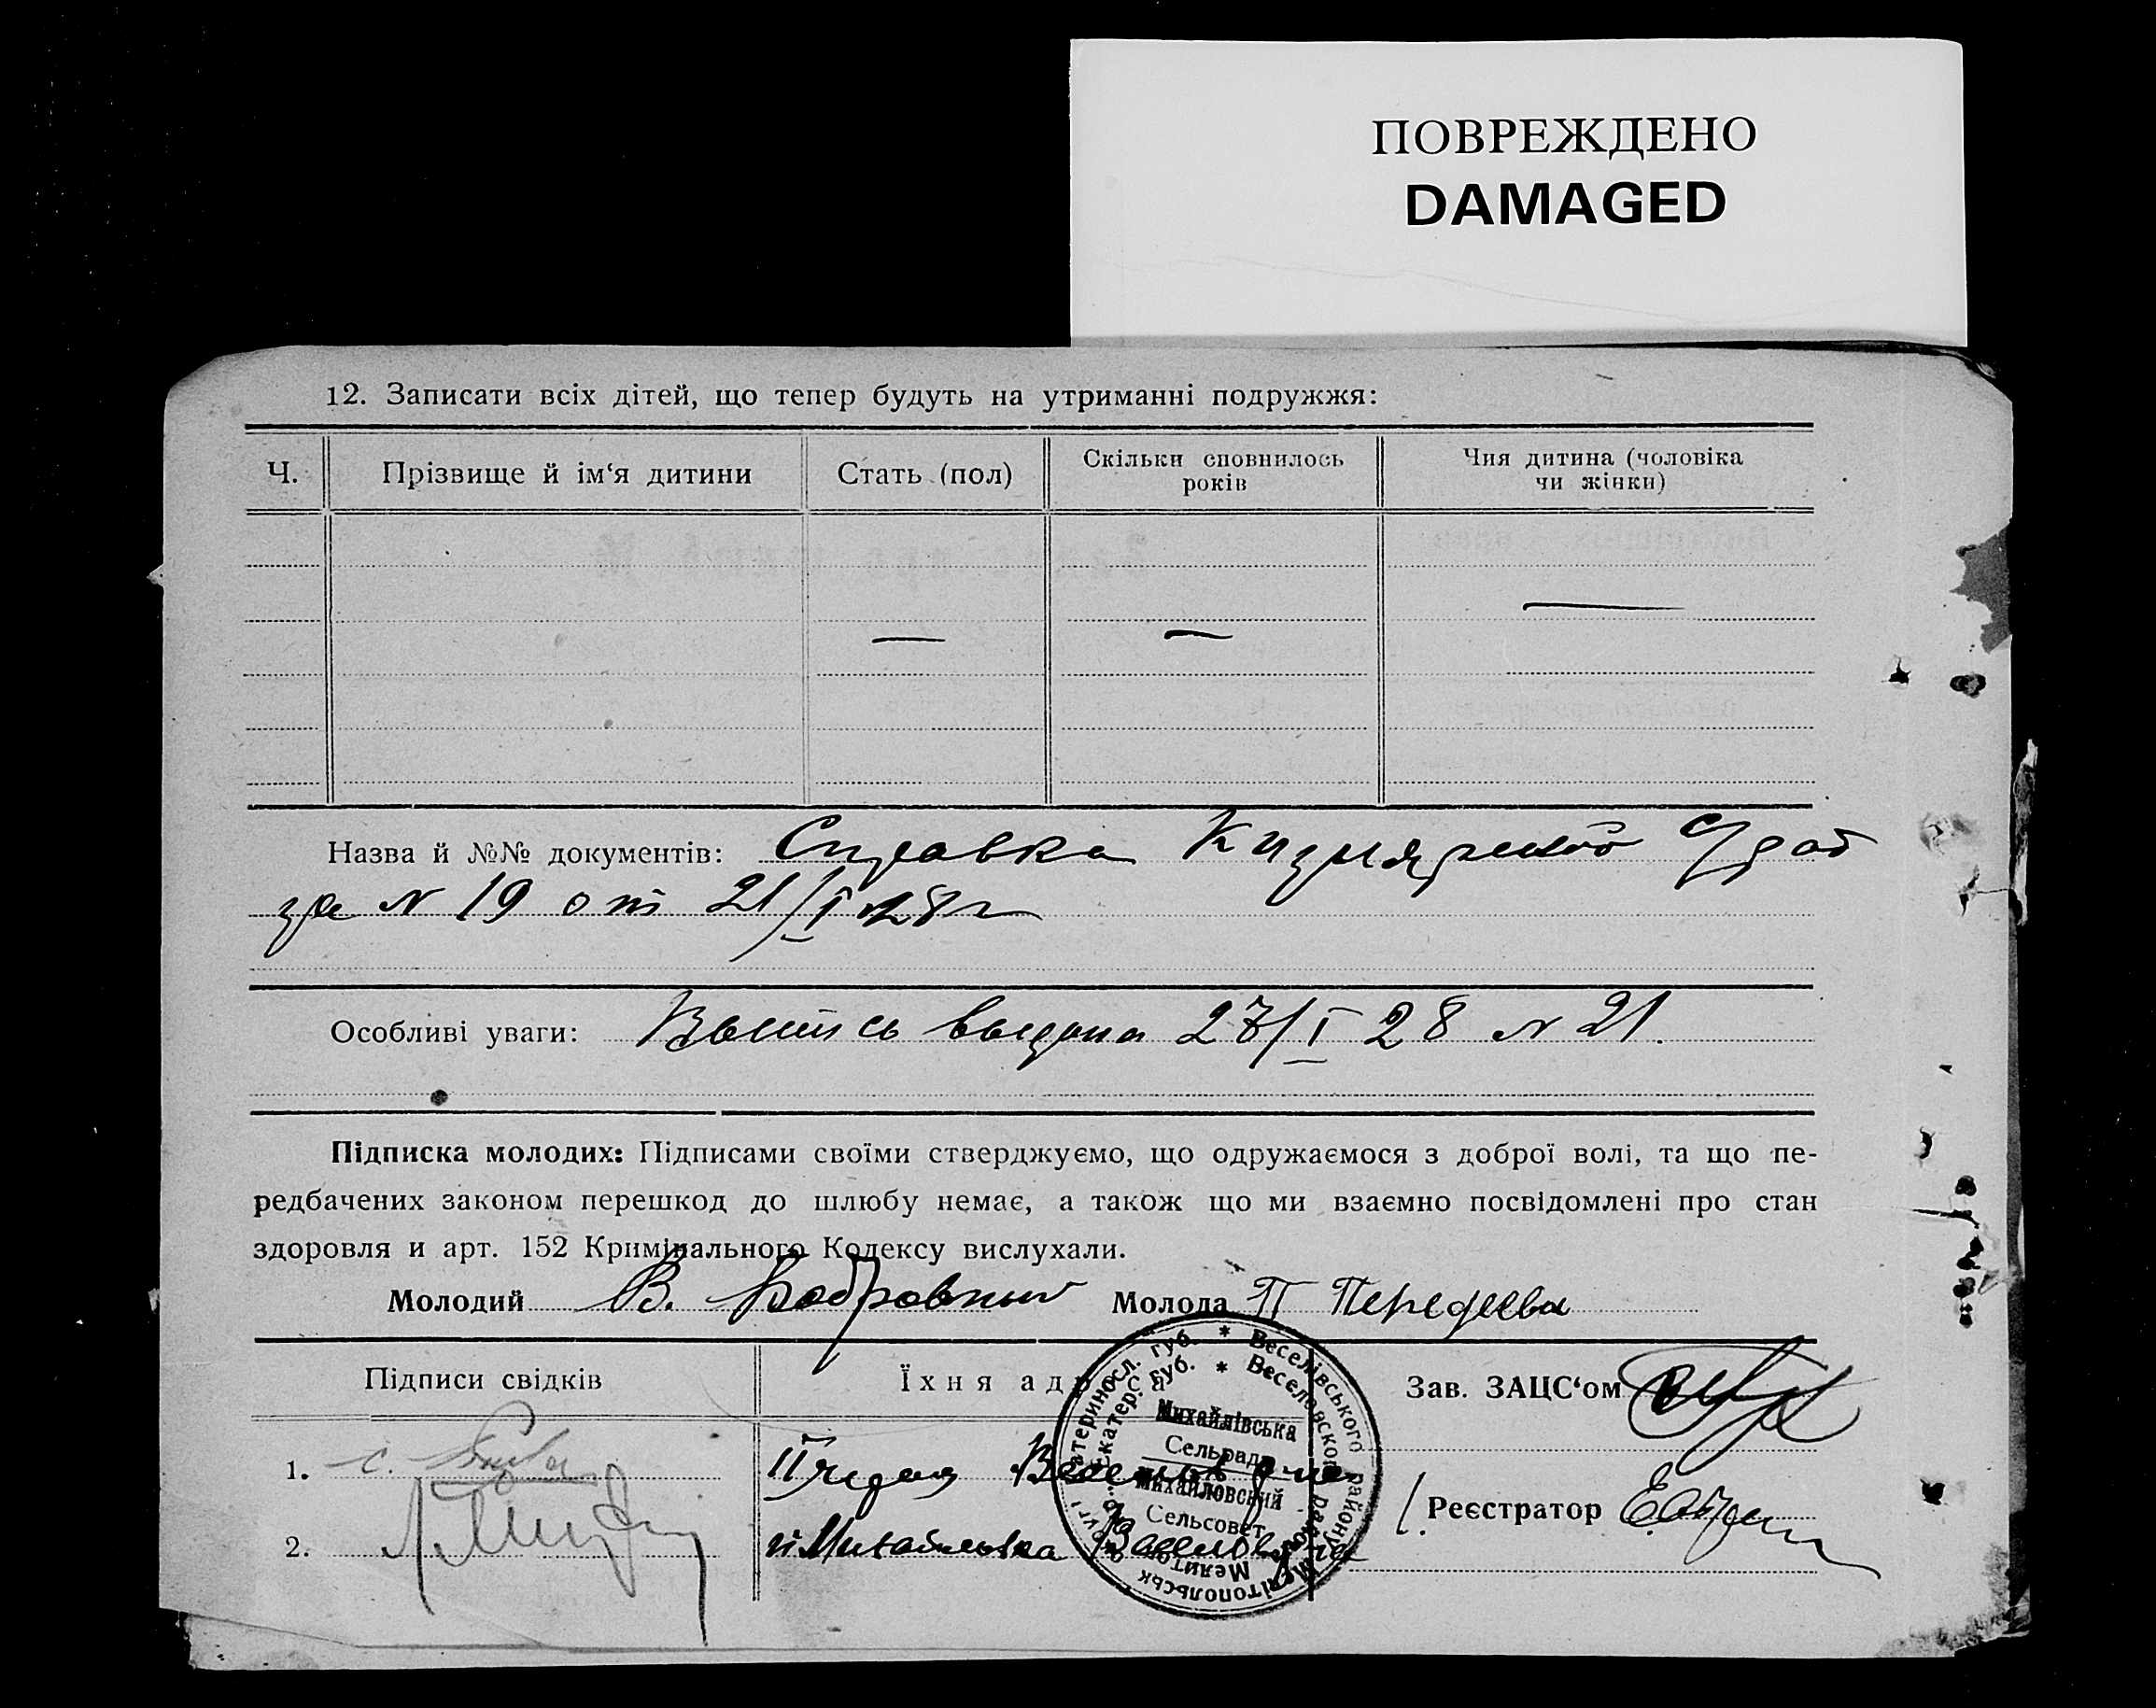 ПОВРЕЖДЕНО
DAMAGED
12. Записати всіх дітей, що тепер будуть на утриманні подружжя:
Ч. Прізвище й ім‘я дитини Стать (пол) Скільки сповнилось років Чия дитина (чоловіка чи жінки)
— — —
Назва й №№ документів: Справка
за N 19 от 21/I 28 г
Особливі уваги: Выпись выдана 27/I 28 N 21.
Підписка молодих: Підписами своїми стверджуємо, що одружаємося з доброї волі, та що пе-
редбачених законом перешкод до шлюбу немає, а також що ми взаємно посвідомлені про стан
здоровля и арт. 152 Кримінального Кодексу вислухали.
Молодий В. Молода П
Підписи свідків Їхня адреса Зав. ЗАЦС‘ом
1.
Реєстратор
2. Михайловка
Катериносл. губ. * Веселівського району
Екатер. губ. * Веселовского района
Михайлівська
Сельрада
Михайловский
Сельсовет